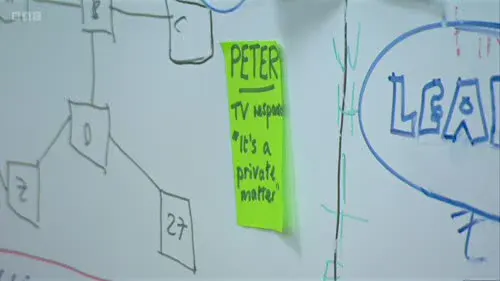 BBC
B
C
PETER
TV respons
"It's a
private
matter"
D
27
LEA